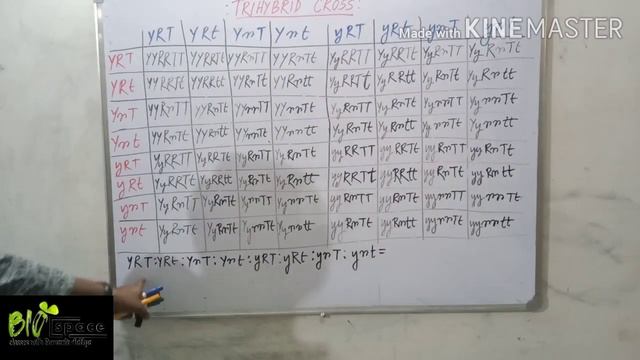 TRIHYBRID CROSS
Made with KINEMASTER
YRT YRt YrT Yrt yRT yRt yrT
YRT YYRRTT YYRRTt YYRrTT YYRrTt YyRRTT YyRRTt YyRrTT YyRrTt
YRt YYRRTt YYRRtt YYRrTt YYRrtt YyRRTt YyRRtt YyRrTt YyRrtt
YrT YYRrTT YYRrTt YYrrTT YYrrTt YyRrTT YyRrTt YyrrTT YyrrTt
Yrt YYRrTt YYRrtt YYrrTt YYrrtt YyRrTt YyRrtt YyrrTt Yyrrtt
yRT YyRRTT YyRRTt YyRrTT YyRrTt yyRRTT yyRRTt yyRrTT yyRrTt
yRt YyRRTt YyRRtt YyRrTt YyRrtt yyRRTt yyRRtt yyRrTt yyRrtt
yrT YyRrTT YyRrTt YyrrTT YyrrTt yyRrTT yyRrTt yyrrTT yyrrTt
yrt YyRrTt YyRrtt YyrrTt Yyrrtt yyRrTt yyRrtt yyrrTt yyrrtt
YRT:YRt:YrT:Yrt:yRT:yRt:yrT:yrt=
BIO space